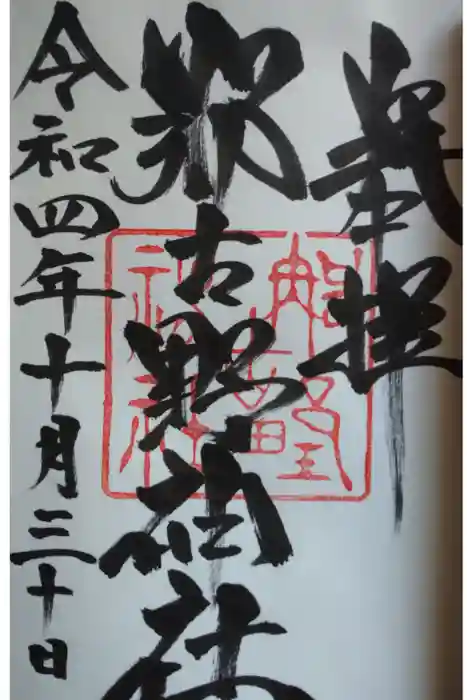 奉拝
那古野神社
令和四年十月三十日
那古野
神社